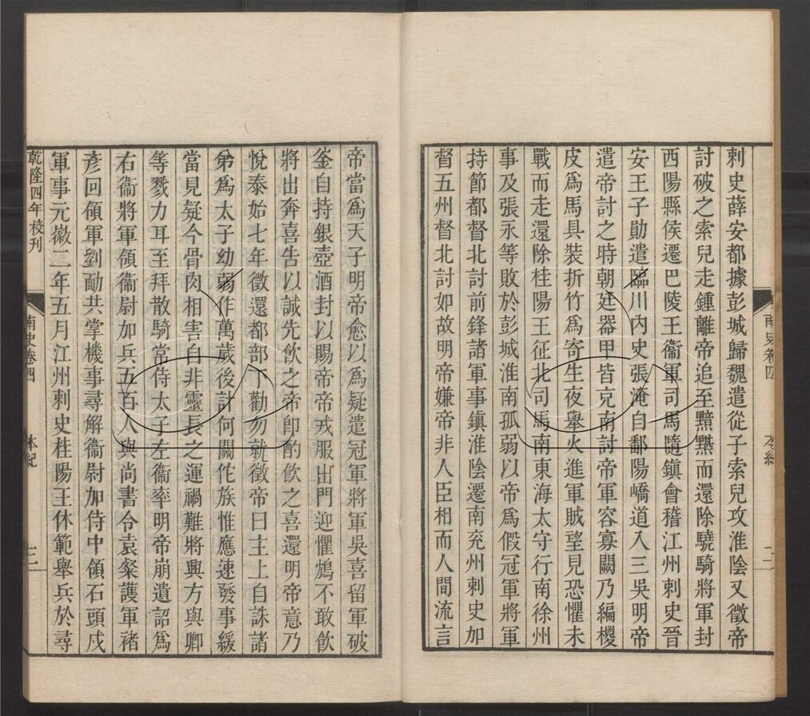 刺史薛安都據彭城歸魏遣從子索兒攻淮陰又徵帝
討破之索兒走鍾離帝追至黯黮而還除驍騎將軍封
西陽縣侯遷巴陵王衞軍司馬隨鎮會稽江州刺史晉
安王子勛遣臨川內史張淹自鄱陽嶠道入三吳明帝
遣帝討之時朝廷器甲皆充南討帝軍容寡闕乃編椶
皮爲馬具裝折竹爲寄生夜舉火進軍賊望見恐懼未
戰而走還除桂陽王征北司馬南東海太守行南徐州
事及張永等敗於彭城淮南孤弱以帝爲假冠軍將軍
持節都督北討前鋒諸軍事鎮淮陰遷南兖州刺史加
督五州督北討如故明帝嫌帝非人臣相而人間流言
南史卷四 本紀 二
帝當爲天子明帝愈以爲疑遣冠軍將軍吳喜留軍破
釜自持銀壺酒封以賜帝帝戎服出門迎懼鴆不敢飲
將出奔喜告以誠先飲之帝卽酌飲之喜還明帝意乃
悅泰始七年徵還都部下勸勿就徵帝曰主上自誅諸
弟爲太子幼弱作萬歲後計何關佗族惟應速發事緩
當見疑今骨肉相害自非靈長之運禍難將興方與卿
等戮力耳至拜散騎常侍太子左衞率明帝崩遺詔爲
右衞將軍領衞尉加兵五百人與尚書令袁粲護軍褚
彥回領軍劉勔共掌機事尋解衞尉加侍中領石頭戍
軍事元徽二年五月江州刺史桂陽王休範舉兵於尋
乾隆四年校刊 南史卷四 本紀 三